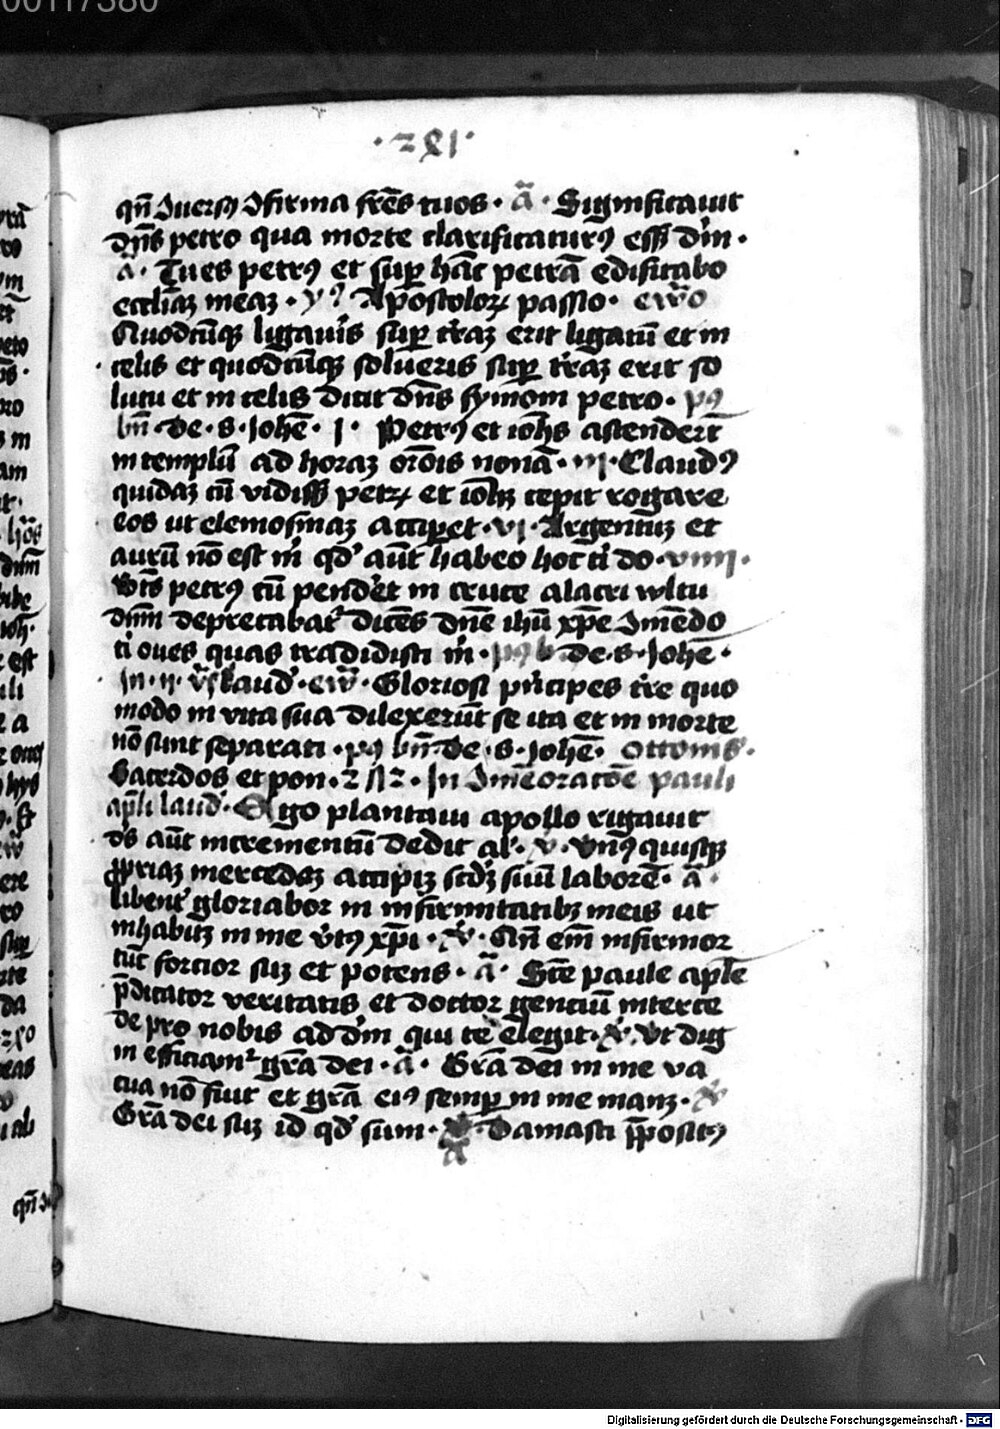 00117380
· 2 4 1 ·
qn̄ ꝯuersꝯ ꝯfirma fr̄es tuos · a͞ · Significauit
dn̄s petro qua morte clarificaturꝯ ess; deū ·
a͞ · Tu es petrꝯ et suꝑ hāc petrā edificabo
eccliāꝫ meaꝫ · Apostoloꝝ passio · ew̄o
Quodcūqꝫ ligauīs suꝑ t̄raꝫ erit ligatū et in
celis et quodcūqꝫ solueris suꝑ t̄raꝫ erit so
lutū et in celis dicit dn̄s symoni petro · pꝯ
bn̄ · de · s · Johē · j · Petrꝯ et ioh̄s ascendert̄
in templū ad horaꝫ or̄ois nonā · iij · Claudꝯ
quidaꝫ cū vidiss; petꝝ et ioh̄ꝫ cepit rogare
eos ut elemosinaꝫ acciꝑet · vj · Argentuꝫ et
aurū nō est m̄ qd' aūt habeo hoc ti do · viiij ·
Bt̄s petrꝯ cū pender̄t in cruce alacri wltu
dn̄m deprecabat' dicēs dn̄e ihū xp̄e ꝯmēdo
ti oues quas tradidisti m̄ · pꝯ b · de · s · Johē ·
In · ij · vs̄ laud' · ew̄ · Gloriosi prīcipes t̄re quo
modo in vita sua dilexerūt se ita et in morte
nō sunt separati · pꝯ bn̄ · de · s · Johē · Ottonis ·
Sacerdos et pon · 2 11 2 · In ꝯmēoratōe pauli
apl̄i laud' · Ego plantaui apollo rigauit
ds̄ aūt incrementū dedit al' · v · Vnꝯquisqꝫ
ꝓpriaꝫ mercedeꝫ accipiꝫ scd'ꝫ suū laborē · a͞ ·
libent' gloriabor in infirmitatibꝫ meis ut
inhabitꝫ in me v̄tꝯ xp̄i · v̄ · Qn̄ em̄ infirmor
tūc forcior suꝫ et potens · a͞ · Sc̄e paule aplē
p̄dicator veritatis et doctor genciū interce
de pro nobis ad dm̄ qui te elegit · v̄ · Vt dig
ni efficiam' grā dei · a͞ · Grā dei in me va
cua nō fuit et grā eiꝯ semꝑ in me manꝫ · v̄
Grā dei suꝫ id qd' sum · Damasci p̄positꝯ
qn̄ ꝯ
Digitalisierung gefördert durch die Deutsche Forschungsgemeinschaft - DFG